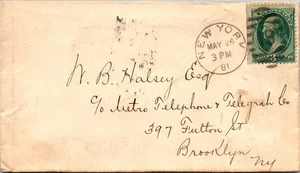 NEW YORK
MAY 26
3 PM
81
W. B. Halsey Esq
c/o Metro Telephone & Telegraph Co
397 Fulton St
Brooklyn
Ny